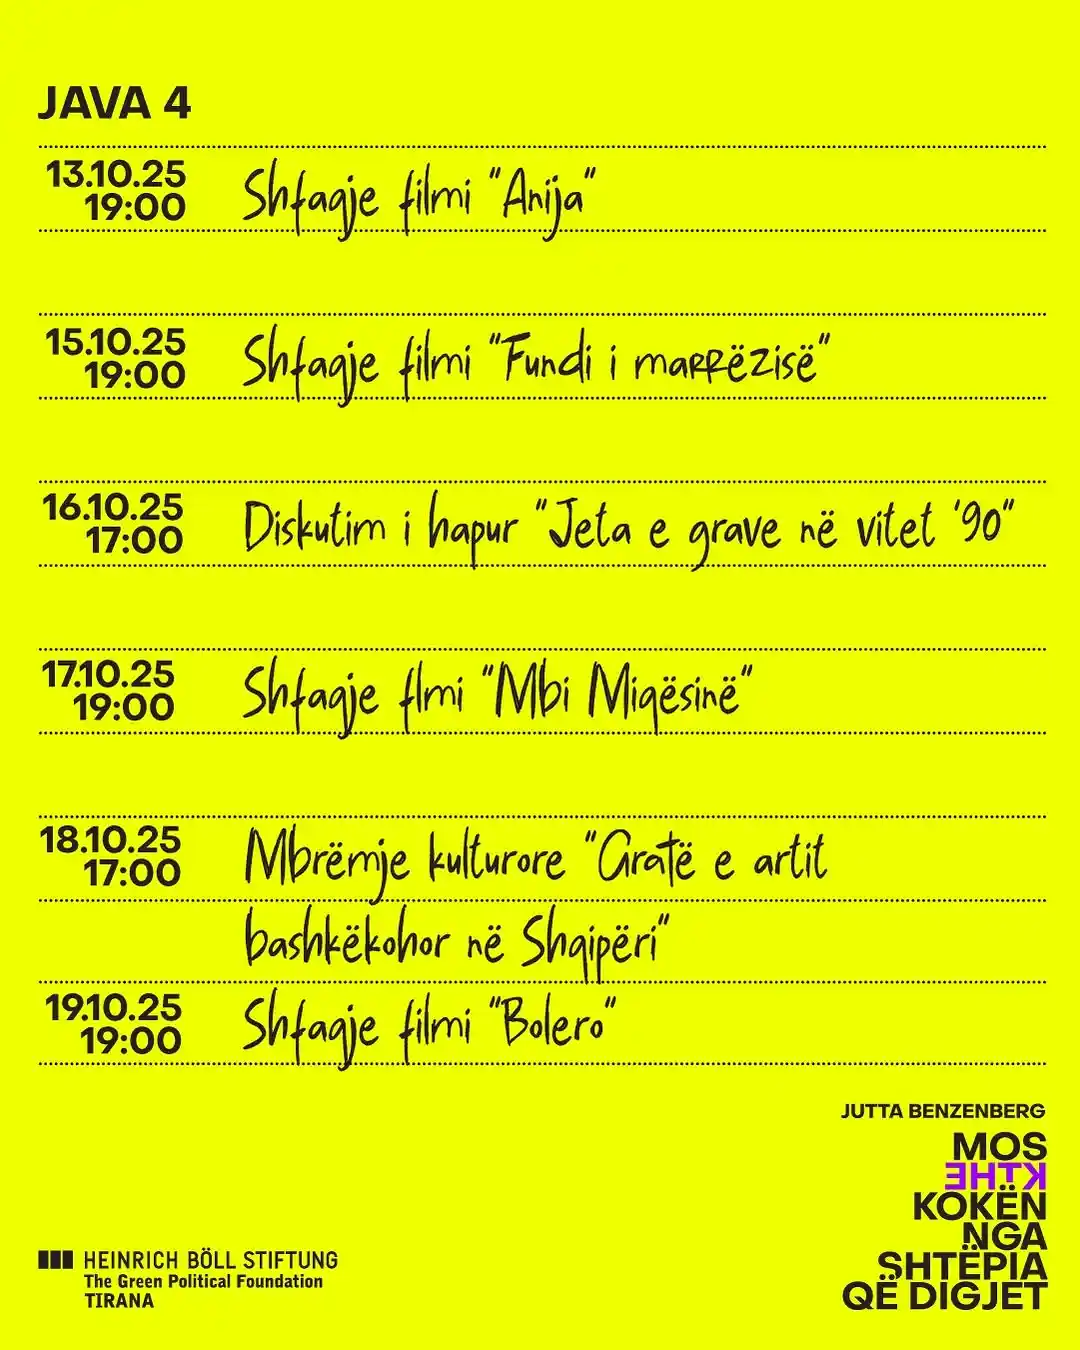 JAVA 4
13.10.25
19:00
Shfaqje filmi "Anija"
15.10.25
19:00
Shfaqje filmi "Fundi i marrëzisë"
16.10.25
17:00
Diskutim i hapur "Jeta e grave në vitet '90"
17.10.25
19:00
Shfaqje flmi "Mbi Miqësinë"
18.10.25
17:00
Mbrëmje kulturore "Gratë e artit
bashkëkohor në Shqipëri"
19.10.25
19:00
Shfaqje filmi "Bolero"
JUTTA BENZENBERG
MOS
KTHE
KOKËN
NGA
SHTËPIA
QË DIGJET
HEINRICH BÖLL STIFTUNG
The Green Political Foundation
TIRANA